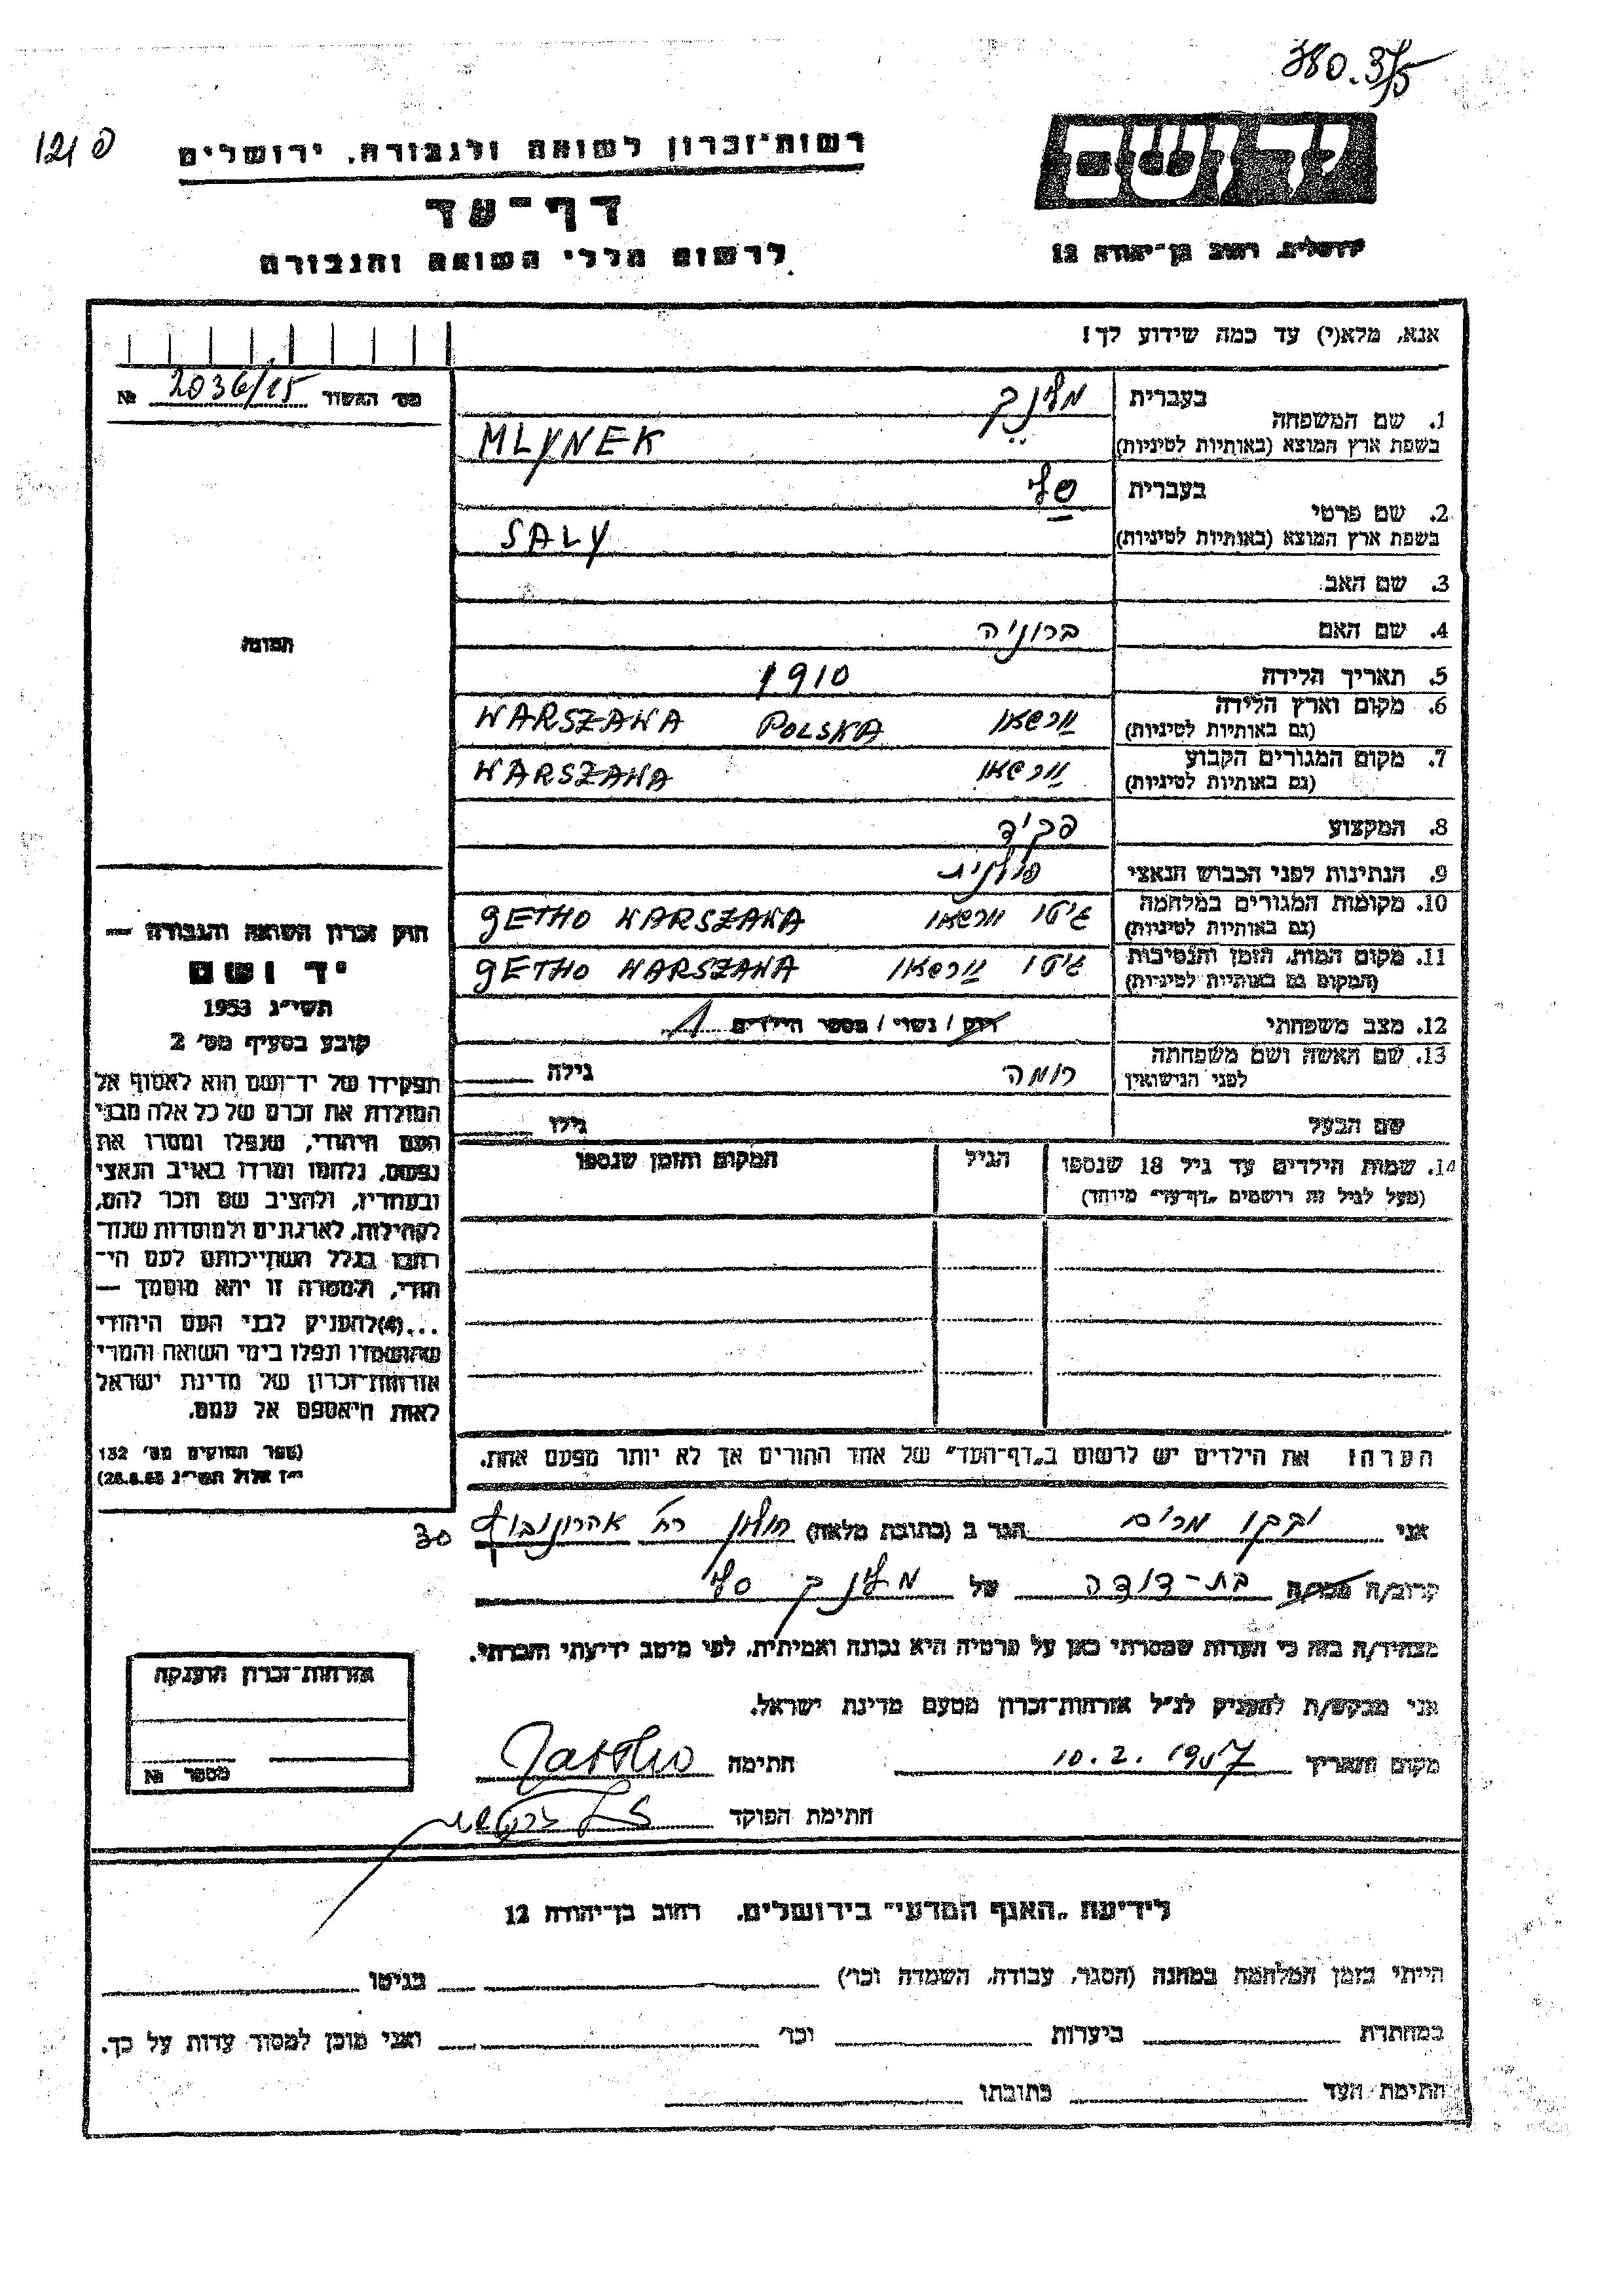 380.3/5
121 פ
יד ושם
רשות־זכרון לשואה ולגבורה, ירושלים
דף־עד
לרשום חללי השואה והגבורה
ירושלים, רחוב בן־יהודה 12
אנא, מלא(י) עד כמה שידוע לך!
מס׳ האשור № 2036/15
1. שם המשפחה בעברית מלינק
בשפת ארץ המוצא (באותיות לטיניות) MLYNEK
2. שם פרטי בעברית סלי
בשפת ארץ המוצא (באותיות לטיניות) SALY
3. שם האב
4. שם האם ברוניה
תמונה
5. תאריך הלידה 1910
6. מקום וארץ הלידה (גם באותיות לטיניות) ורשאו POLSKA WARSZAWA
7. מקום המגורים הקבוע (גם באותיות לטיניות) ורשאו WARSZAWA
8. המקצוע פקיד
9. הנתינות לפני הכבוש הנאצי פולנית
10. מקומות המגורים במלחמה (גם באותיות לטיניות) גיטו ורשאו GETHO WARSZAWA
11. מקום המות, הזמן והנסיבות (המקום גם באותיות לטיניות) גיטו ורשאו GETHO WARSZAWA
12. מצב משפחתי רווק / נשוי / מספר הילדים 1
13. שם האשה ושם משפחתה לפני הנישואין רומה גילה
שם הבעל גילו
14. שמות הילדים עד גיל 18 שנספו הגיל המקום והזמן שנספו
(מעל לגיל זה רושמים „דף־עד״ מיוחד)
חוק זכרון השואה והגבורה —
יד ושם
תשי״ג 1953
קובע בסעיף מס׳ 2
תפקידו של יד־ושם הוא לאסוף אל
המולדת את זכרם של כל אלה מבני
העם היהודי, שנפלו ומסרו את
נפשם, נלחמו ומרדו באויב הנאצי
ובעוזריו, ולהציב שם וזכר להם,
לקהילות, לארגונים ולמוסדות שנח־
רבו בגלל השתייכותם לעם הי־
הודי, ולמטרה זו יהא מוסמך —
...(4)להעניק לבני העם היהודי
שהושמדו ונפלו בימי השואה והמרי
אזרחות־זכרון של מדינת ישראל
לאות היאספם אל עמם.
(ספר החוקים מס׳ 132
י״ז אלול תשי״ג 28.8.53)
הערה: את הילדים יש לרשום ב„דף־העד״ של אחד ההורים אך לא יותר מפעם אחת.
אני יבקו מרים הגר ב (כתובת מלאה) חולון רח׳ אהרונוביץ 30
קרוב/ה מכר/ה בת-דודה של מלינק סלי
מצהיר/ה בזה כי העדות שמסרתי כאן על פרטיה היא נכונה ואמיתית, לפי מיטב ידיעתי והכרתי.
אני מבקש/ת להעניק לנ״ל אזרחות־זכרון מטעם מדינת ישראל.
מקום ותאריך 10.2.1957 חתימה
חתימת הפוקד
אזרחות־זכרון הוענקה
מספר №
לידיעת „האגף המדעי״ בירושלים, רחוב בן־יהודה 12
הייתי בזמן המלחמה במחנה (הסגר, עבודה, השמדה וכו׳) בגיטו
במחתרת ביערות וכו׳ ואני מוכן למסור עדות על כך.
חתימת העד כתובתו